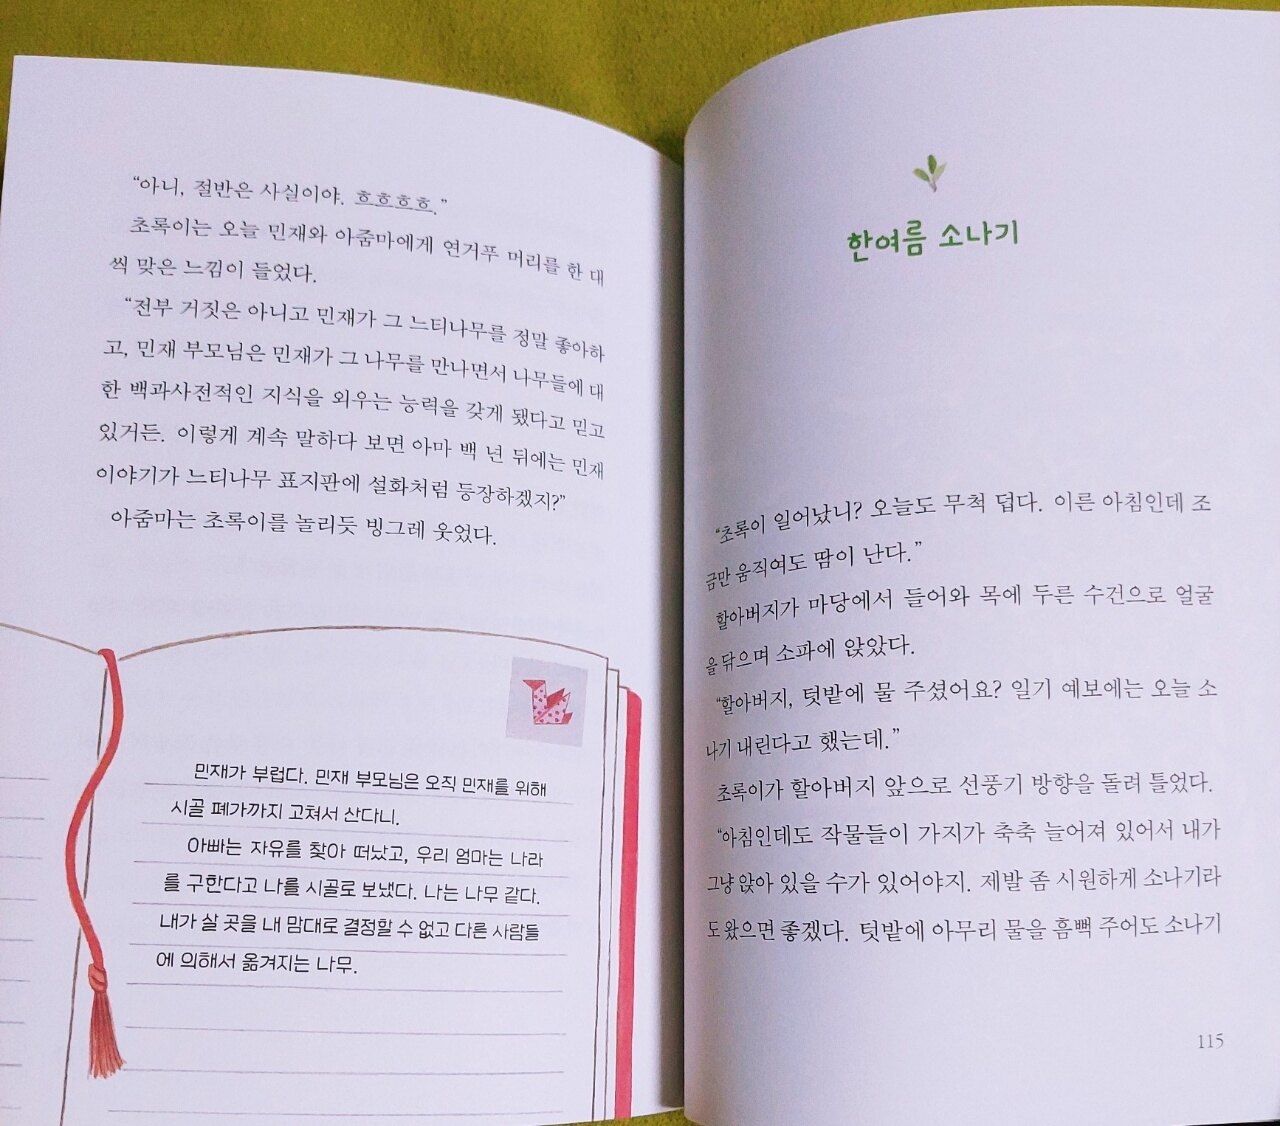 “아니, 절반은 사실이야. 흐흐흐흐.”
초록이는 오늘 민재와 아줌마에게 연거푸 머리를 한 대
씩 맞은 느낌이 들었다.
“전부 거짓은 아니고 민재가 그 느티나무를 정말 좋아하
고, 민재 부모님은 민재가 그 나무를 만나면서 나무들에 대
한 백과사전적인 지식을 외우는 능력을 갖게 됐다고 믿고
있거든. 이렇게 계속 말하다 보면 아마 백 년 뒤에는 민재
이야기가 느티나무 표지판에 설화처럼 등장하겠지?”
아줌마는 초록이를 놀리듯 빙그레 웃었다.
민재가 부럽다. 민재 부모님은 오직 민재를 위해
시골 폐가까지 고쳐서 산다니.
아빠는 자유를 찾아 떠났고, 우리 엄마는 나라
를 구한다고 나를 시골로 보냈다. 나는 나무 같다.
내가 살 곳을 내 맘대로 결정할 수 없고 다른 사람들
에 의해서 옮겨지는 나무.
한여름 소나기
“초록이 일어났니? 오늘도 무척 덥다. 이른 아침인데 조
금만 움직여도 땀이 난다.”
할아버지가 마당에서 들어와 목에 두른 수건으로 얼굴
을 닦으며 소파에 앉았다.
“할아버지, 텃밭에 물 주셨어요? 일기 예보에는 오늘 소
나기 내린다고 했는데.”
초록이가 할아버지 앞으로 선풍기 방향을 돌려 틀었다.
“아침인데도 작물들이 가지가 축축 늘어져 있어서 내가
그냥 앉아 있을 수가 있어야지. 제발 좀 시원하게 소나기라
도 왔으면 좋겠다. 텃밭에 아무리 물을 흠뻑 주어도 소나기
115